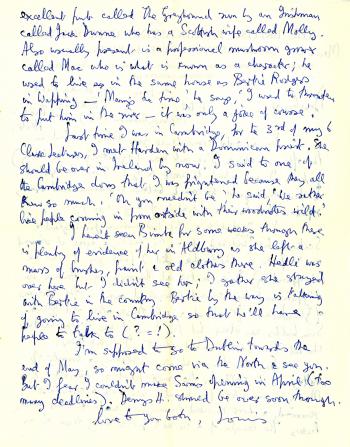 excellent pub called The Greyhound run by an Irishman
called Jack Dunne who has a Scottish wife called Molly.
Also usually present is a professional mushroom grower
called Mac who is what is known as a character; he
used to live in the same house as Bertie Rodgers
in Wapping – 'Many's the time', he says, 'I used to threaten
to put him in the river – it was only a joke of course.'
Last time I was in Cambridge, for the 3rd of my 6
Clark Lectures, I met Harden with a Dominican priest. He
should be over in Ireland by now. I said to one of
the Cambridge dons that I was frightened because they all
knew so much. 'Oh you needn't be', he said, 'We rather
like people coming in from outside with their woodnotes wild.'
I haven't seen for some weeks though there
is plenty of evidence of her in Aldbury as she left a
mass of brushes, paint & old clothes there. Hedli was
over here but I didn't see her; I gather she stayed
with Bertie in the country. Bertie by the way is talking
of going to live in Cambridge so that he'll have
people to talk to (? = !).
I'm supposed to go to Dublin towards the
end of May, so might come via the North & see you.
But I fear I couldn't make Sam's opening in April (too
many deadlines). H. should be over soon though.
love to you both, Louis